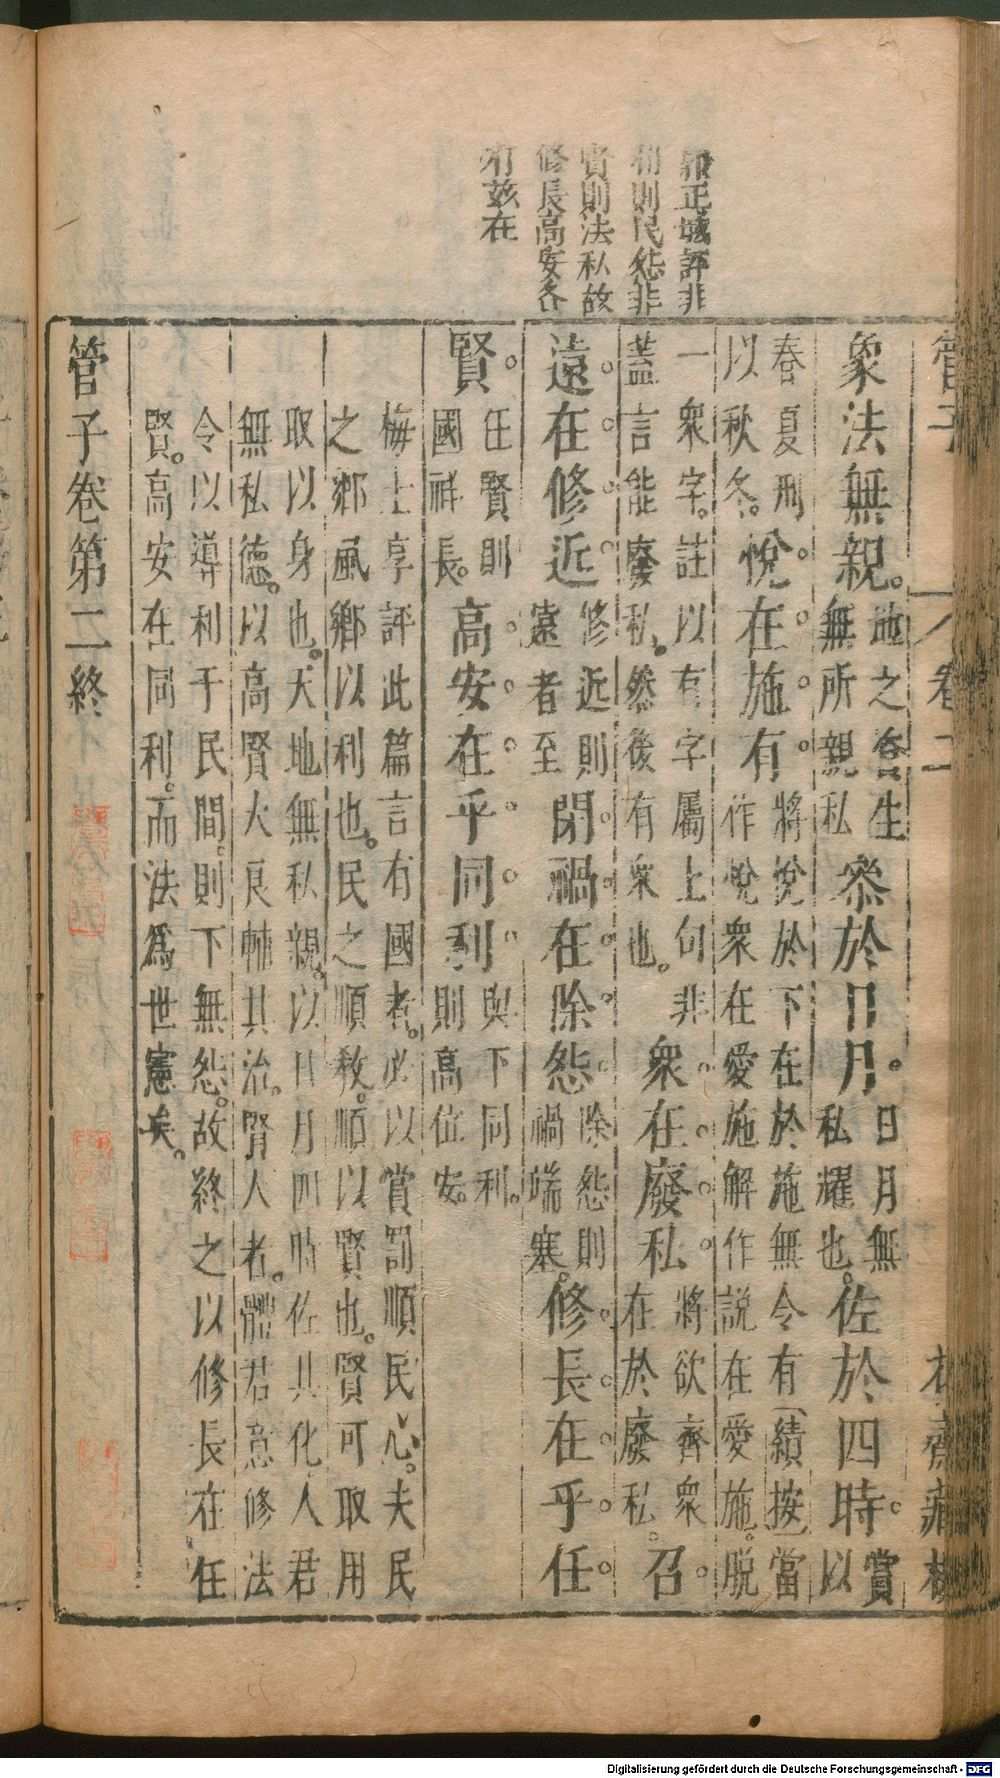 郭正域評非
和則民怨非
實則法私故
修長高安各
有玆在
管子 卷二
象法無親。地之養生無所親私參於日月。日月無私耀也。佐於四時。賞以
春夏刑以秋冬。悅在施有將悅於下在於施無令有績按當作悅衆在愛施解作説在愛施。脫
一衆字。註以有字屬上句非蓋言能廢私。然後有衆也。衆在廢私將欲齊衆在於廢私。召
遠在修近修近則遠者至閉禍在除怨除怨則禍端塞。修長在乎任
賢任賢則國祚長。高安在乎同利與下同利。則高位安。
梅士享評此篇言有國者。必以賞罰順民心。夫民
之鄕風鄕以利也。民之順敎。順以賢也。賢可取用
取以身也。天地無私親。以日月四時佐其化人君
無私德。以高賢大良輔其治。賢人者。體君意修法
令以導利于民間。則下無怨。故終之以修長在任
賢。高安在同利。而法爲世憲矣。
管子卷第二終
Digitalisierung gefördert durch die Deutsche Forschungsgemeinschaft - DFG